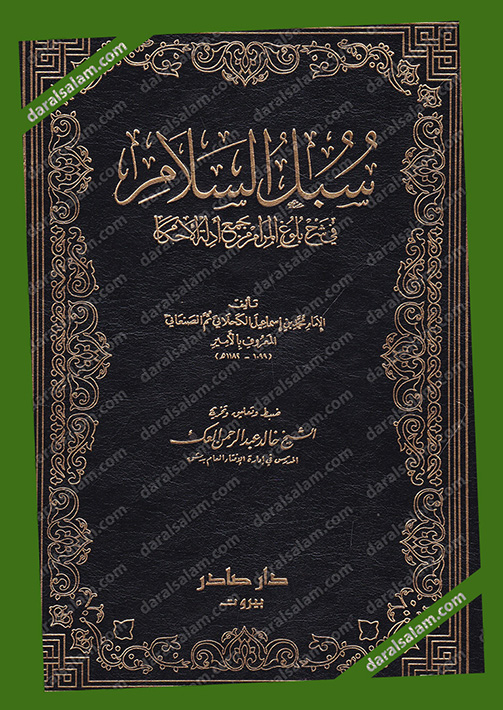 سُبُلُ السَّلَامِ
في شرح بلوغ المرام من جمع أدلة الأحكام
تأليف
الإمام محمد بن إسماعيل الكحلاني ثم الصنعاني
المعروف بالأمير
(١٠٩٩ - ١١٨٢ هـ)
ضبط وتعليق وتخريج
الشيخ خالد عبد الرحمن العك
المدرس في إدارة الإفتاء العام بدمشق
دار صادر
بيروت
daralsalam.com
daralsalam.com